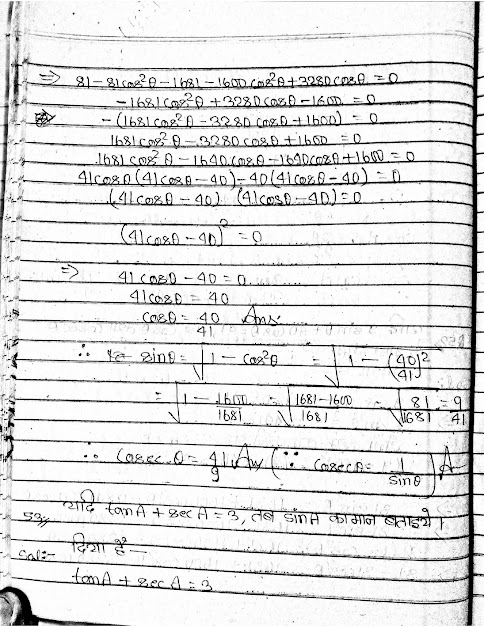 ⇒ 81 - 81cos²θ - 1681 - 1600cos²θ + 3280cosθ = 0
- 1681cos²θ + 3280cosθ - 1600 = 0
- (1681cos²θ - 3280cosθ + 1600) = 0
1681cos²θ - 3280cosθ + 1600 = 0
1681cos²θ - 1640cosθ - 1640cosθ + 1600 = 0
41cosθ(41cosθ - 40) - 40(41cosθ - 40) = 0
(41cosθ - 40) (41cosθ - 40) = 0
(41cosθ - 40)² = 0
⇒ 41cosθ - 40 = 0
41cosθ = 40
cosθ = 40/41 Ans
∴ sinθ = √(1 - cos²θ) = √(1 - (40/41)²)
= √(1 - 1600/1681) = √((1681-1600)/1681) = √(81/1681) = 9/41
∴ Cosecθ = 41/9 Ans (∵ CosecA = 1/sinθ)
53, यदि tanA + secA = 3, तब sinA का मान बताइये।
Sol:- दिया है—
tanA + secA = 3